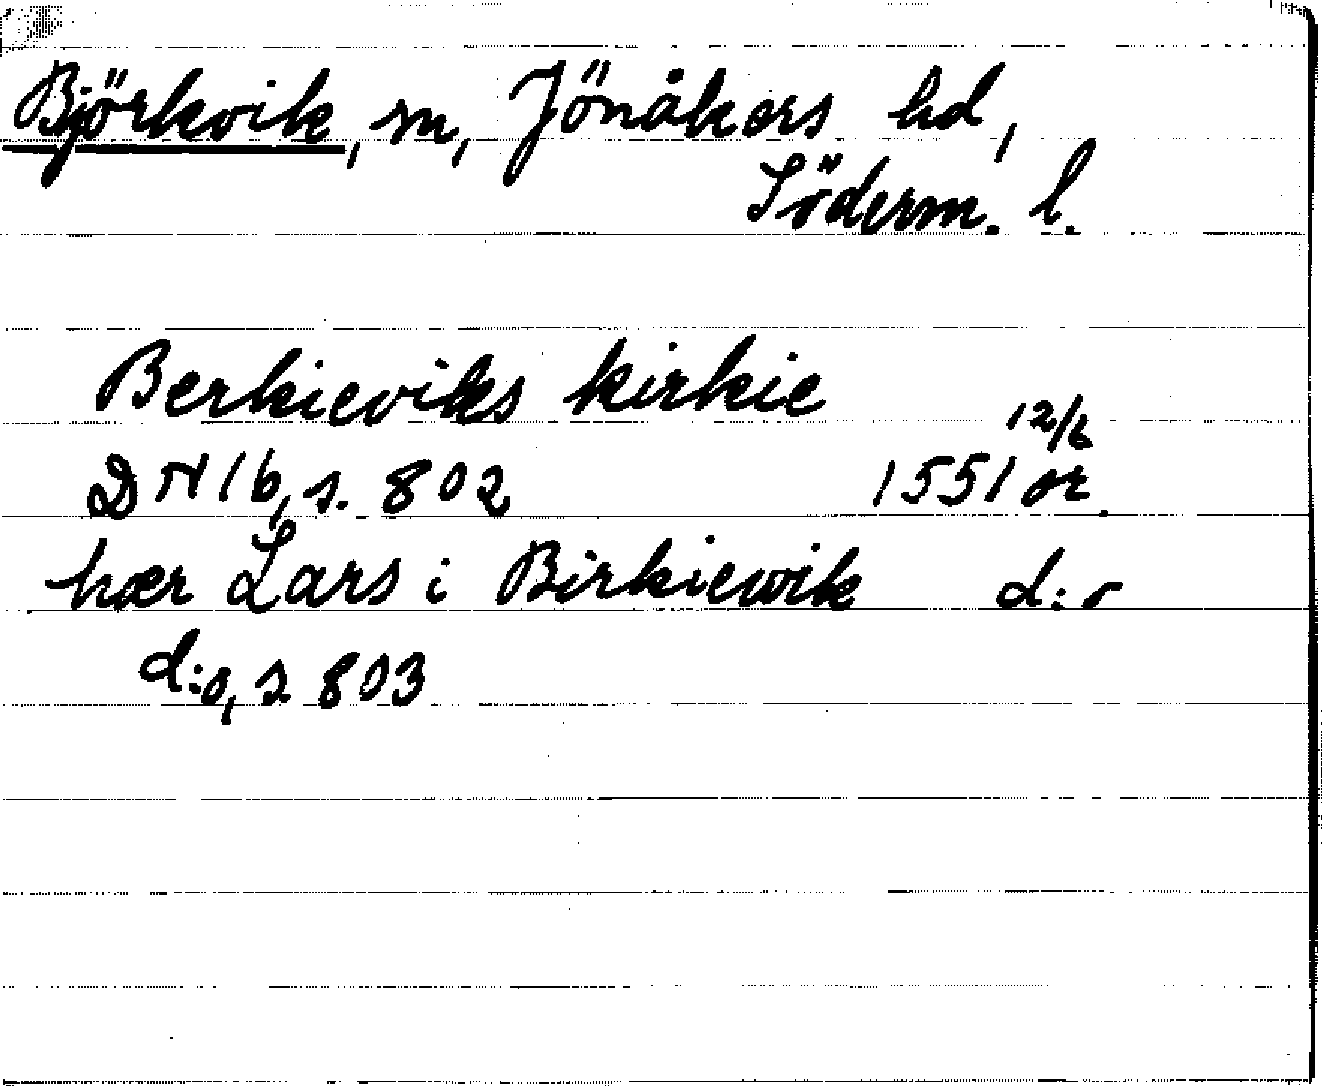 Björkvik, sn, Jönåkers hd,
Söderm. l.
Berkieviks kirkie
12/6
DN 16, s. 802 1551 or.
hær Lars i Birkiewik d:o
d:o, s. 803